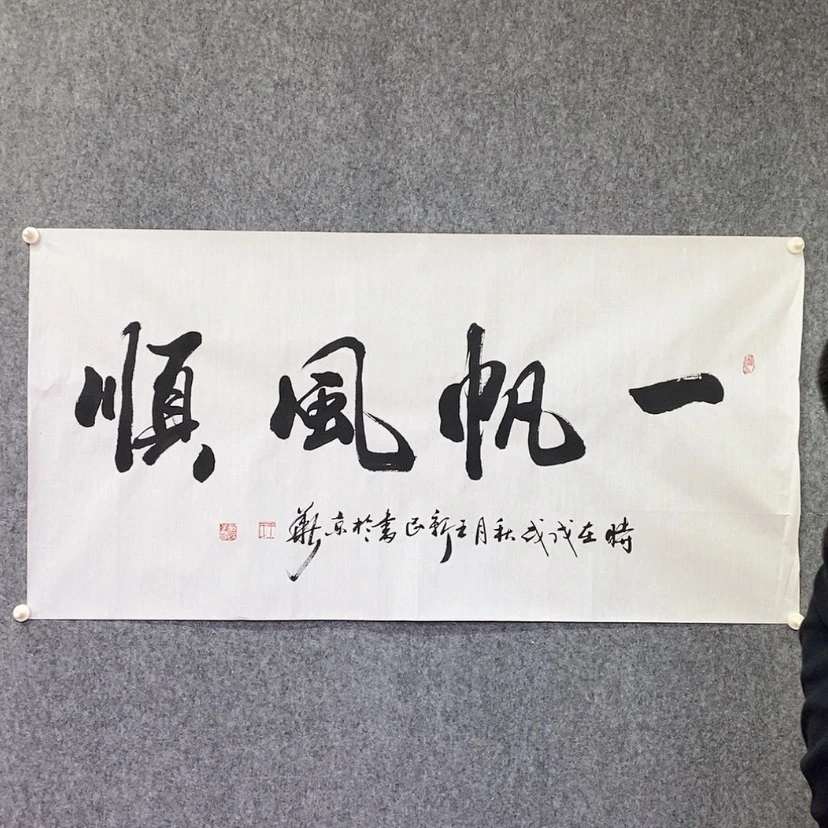 一帆風順
時在戊戌秋月王新民書於京華